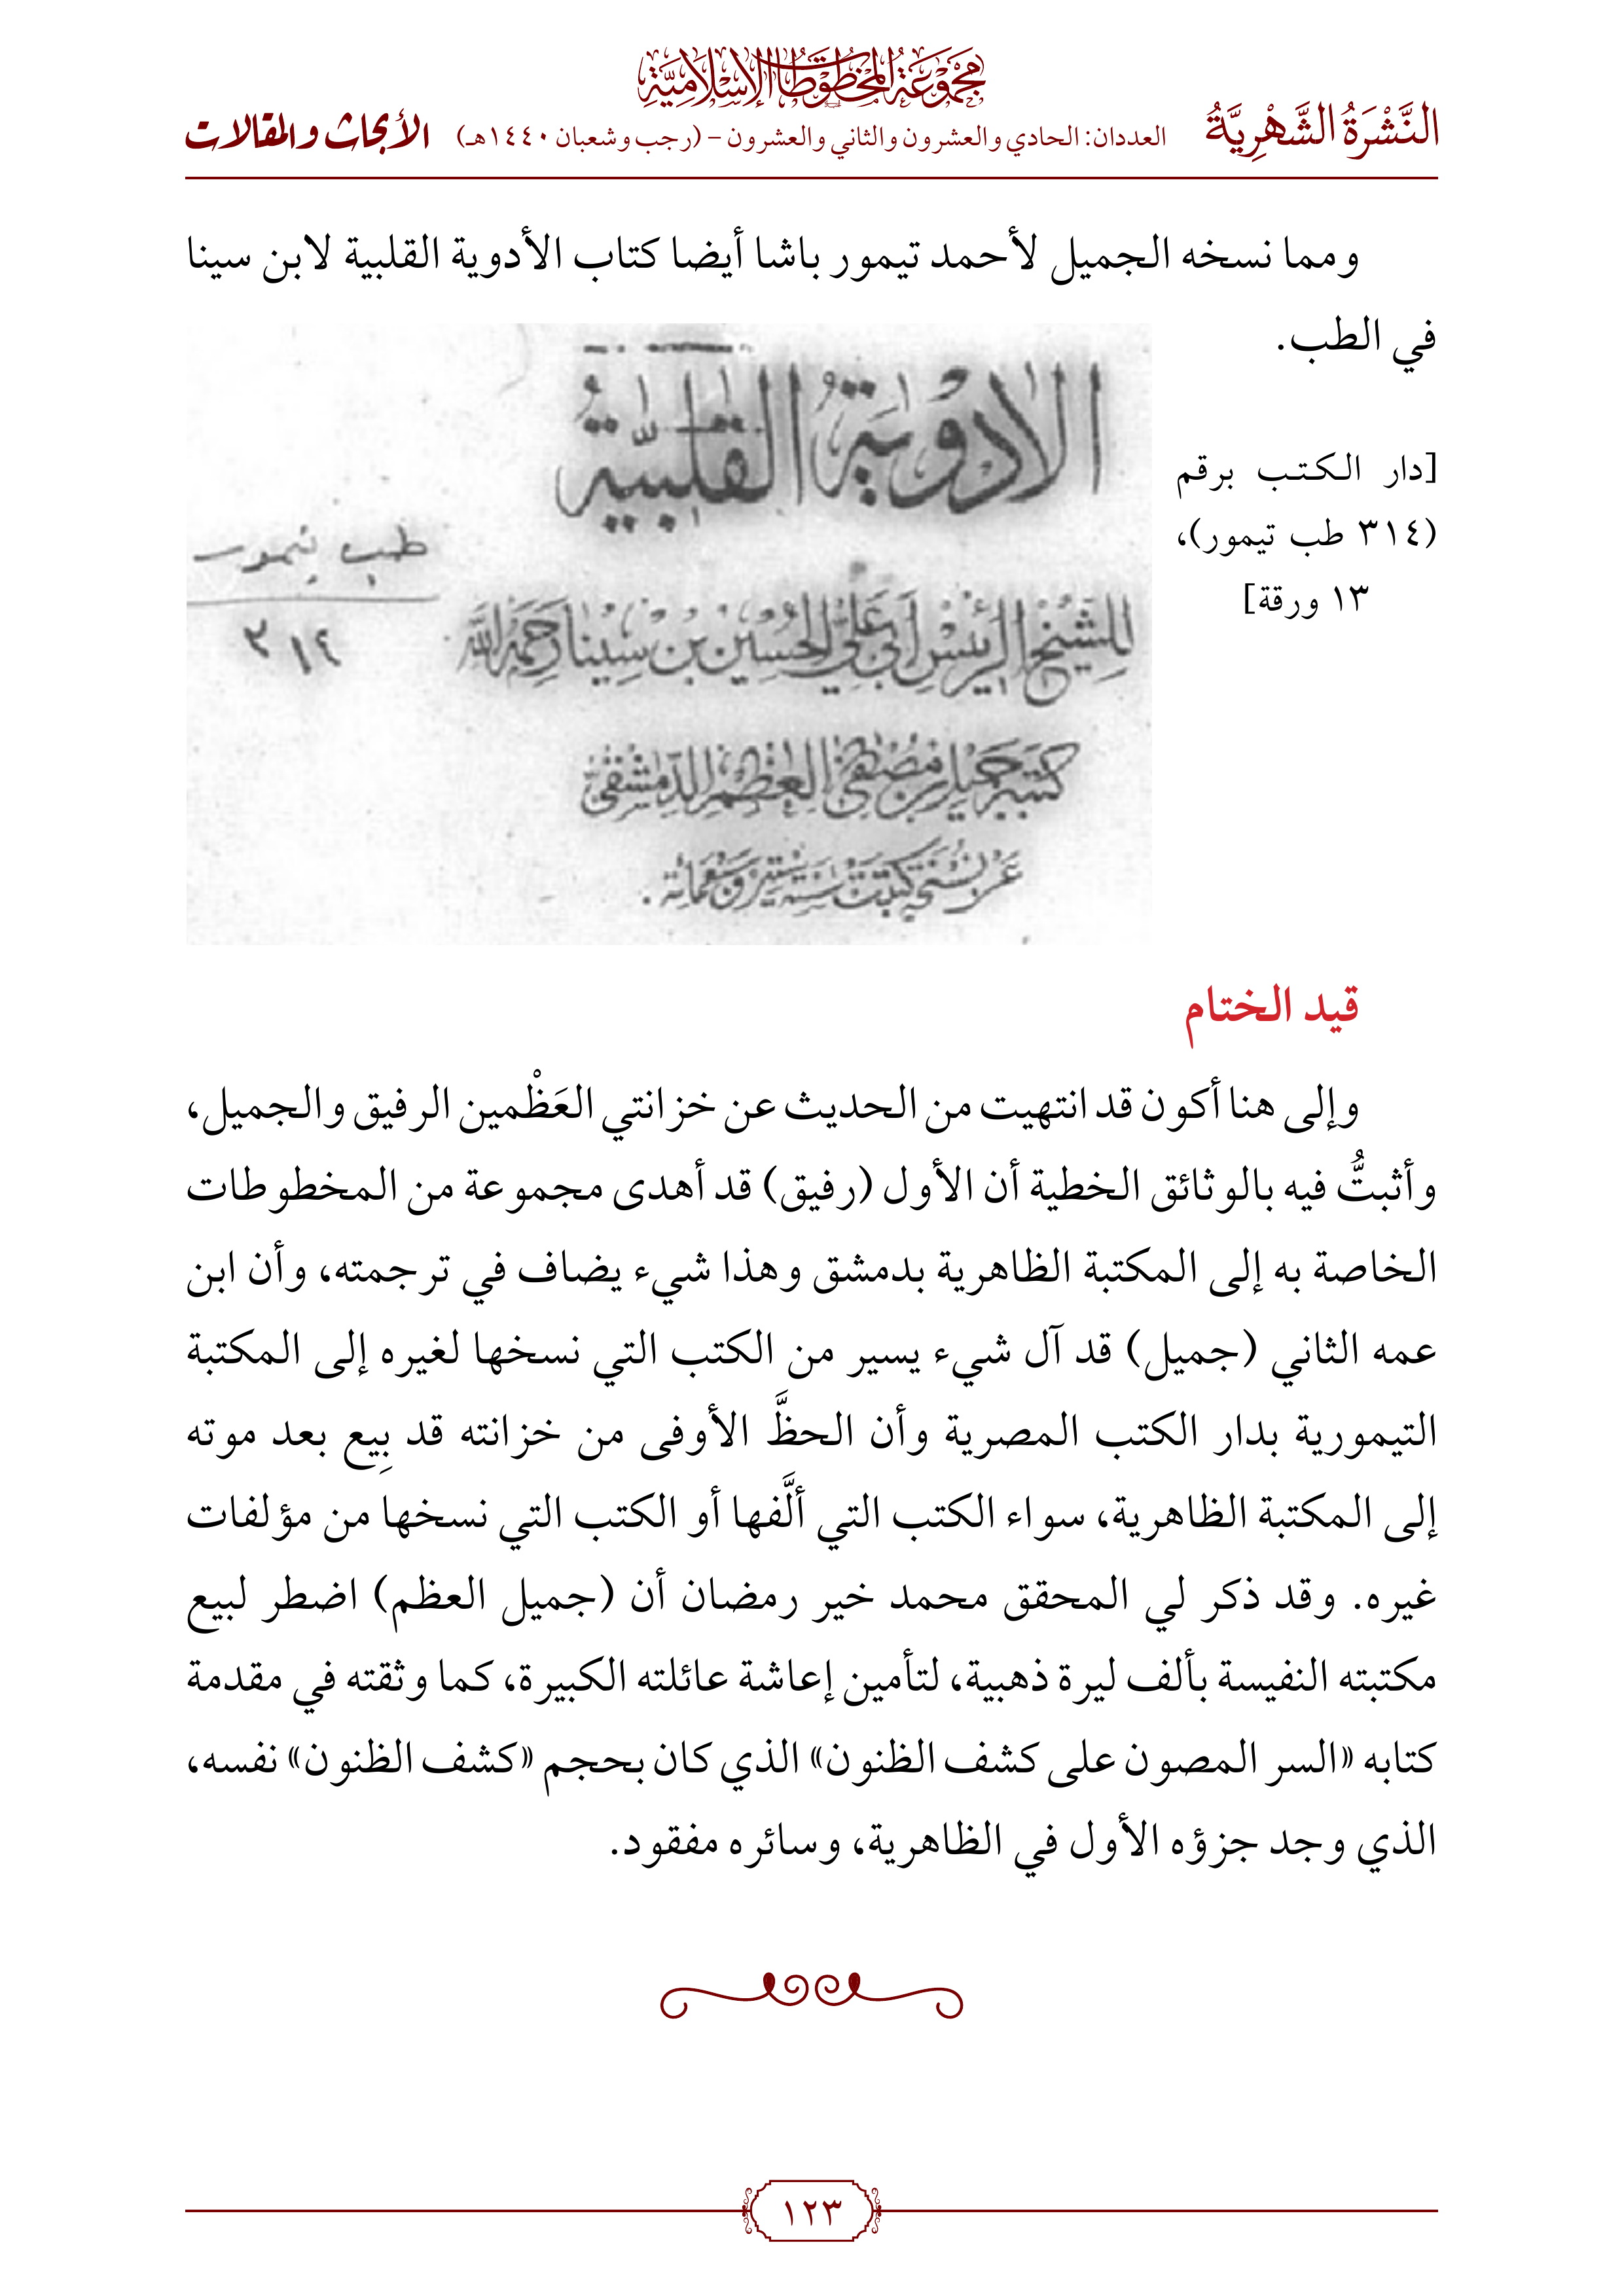 مجموعة المخطوطات الإسلامية
النَّشْرَةُ الشَّهْرِيَّةُ
العددان: الحادي والعشرون والثاني والعشرون – (رجب وشعبان ١٤٤٠هـ)
الأبحاث والمقالات
ومما نسخه الجميل لأحمد تيمور باشا أيضا كتاب الأدوية القلبية لابن سينا
في الطب.
[دار الكتب برقم
(٣١٤ طب تيمور)،
١٣ ورقة]
الادوية القلبية
طب تيمور
٣١٤
للشيخ الرئيس أبي علي الحسين بن سينا رحمه الله
كتبه جميل بن مصطفى العظم الدمشقي
عن نسخة كتبت سنة ستين وسبعمائة.
قيد الختام
وإلى هنا أكون قد انتهيت من الحديث عن خزانتي العَظْمين الرفيق والجميل،
وأثبتُّ فيه بالوثائق الخطية أن الأول (رفيق) قد أهدى مجموعة من المخطوطات
الخاصة به إلى المكتبة الظاهرية بدمشق وهذا شيء يضاف في ترجمته، وأن ابن
عمه الثاني (جميل) قد آل شيء يسير من الكتب التي نسخها لغيره إلى المكتبة
التيمورية بدار الكتب المصرية وأن الحظَّ الأوفى من خزانته قد بِيع بعد موته
إلى المكتبة الظاهرية، سواء الكتب التي ألَّفها أو الكتب التي نسخها من مؤلفات
غيره. وقد ذكر لي المحقق محمد خير رمضان أن (جميل العظم) اضطر لبيع
مكتبته النفيسة بألف ليرة ذهبية، لتأمين إعاشة عائلته الكبيرة، كما وثقته في مقدمة
كتابه «السر المصون على كشف الظنون» الذي كان بحجم «كشف الظنون» نفسه،
الذي وجد جزؤه الأول في الظاهرية، وسائره مفقود.
١٢٣